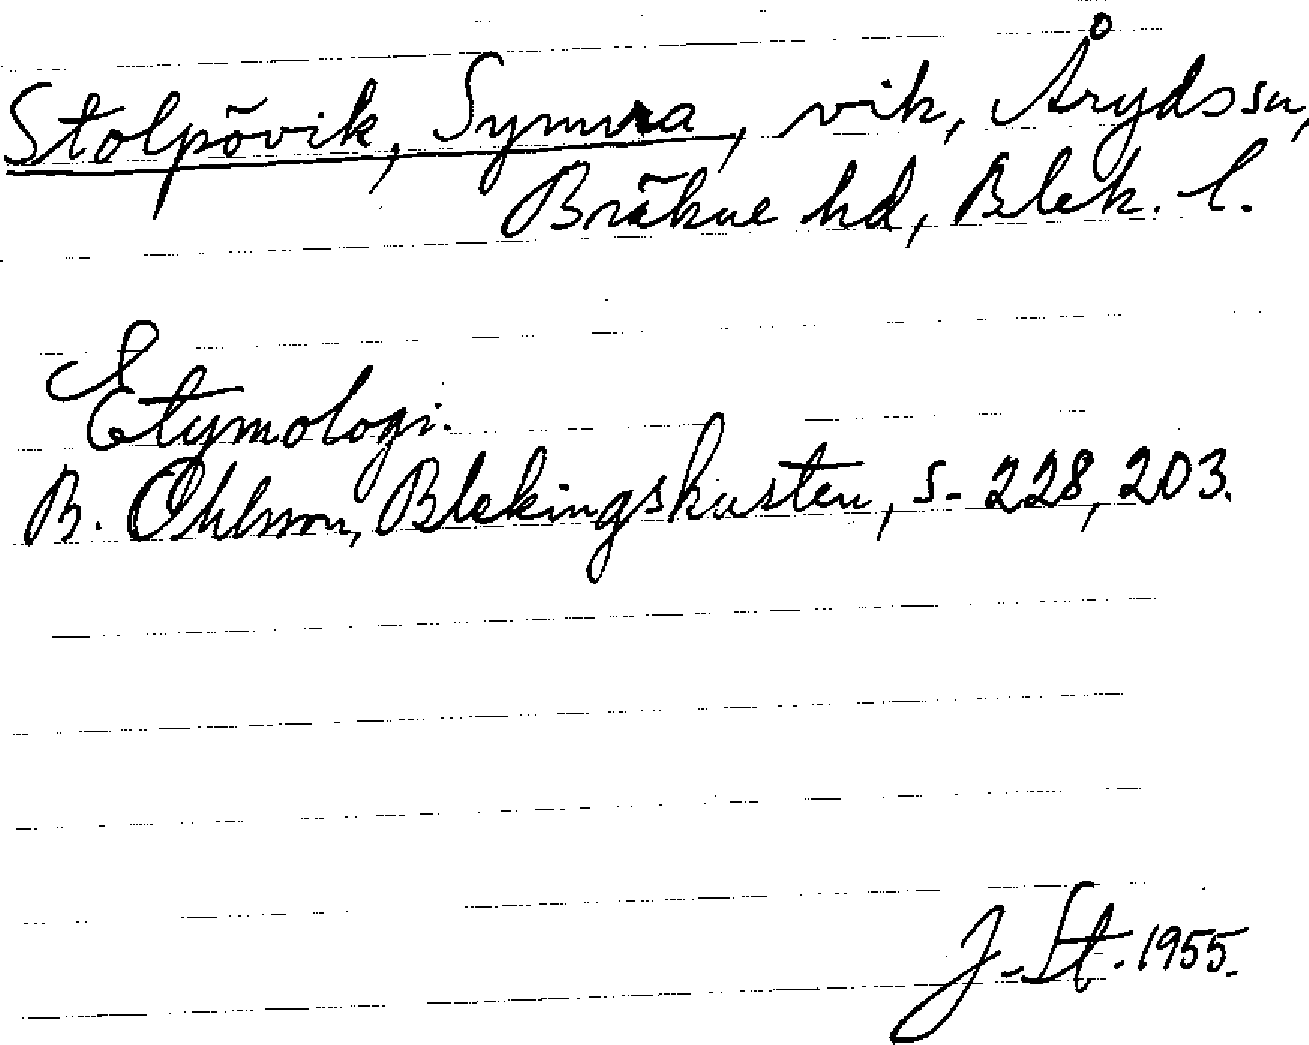 Stolpövik, Symra, vik, Åryds sn,
Bräkne hd, Blek. l.
Etymologi.
B. Ohlsson, Blekingskusten, s. 228, 203.
J. St. 1955.